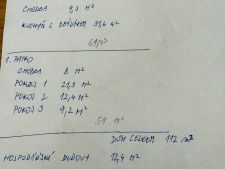 CHODBA 9,3 m²
KUCHYŇ S OBÝVÁKEM 31,6 m²
61 m²
1. PATRO
CHODBA 8 m²
POKOJ 1 21,3 m²
POKOJ 2 12,4 m²
POKOJ 3 9,2 m²
51 m²
DŮM CELKEM 112 m²
HOSPODÁŘSKÁ BUDOVA 12,4 m²